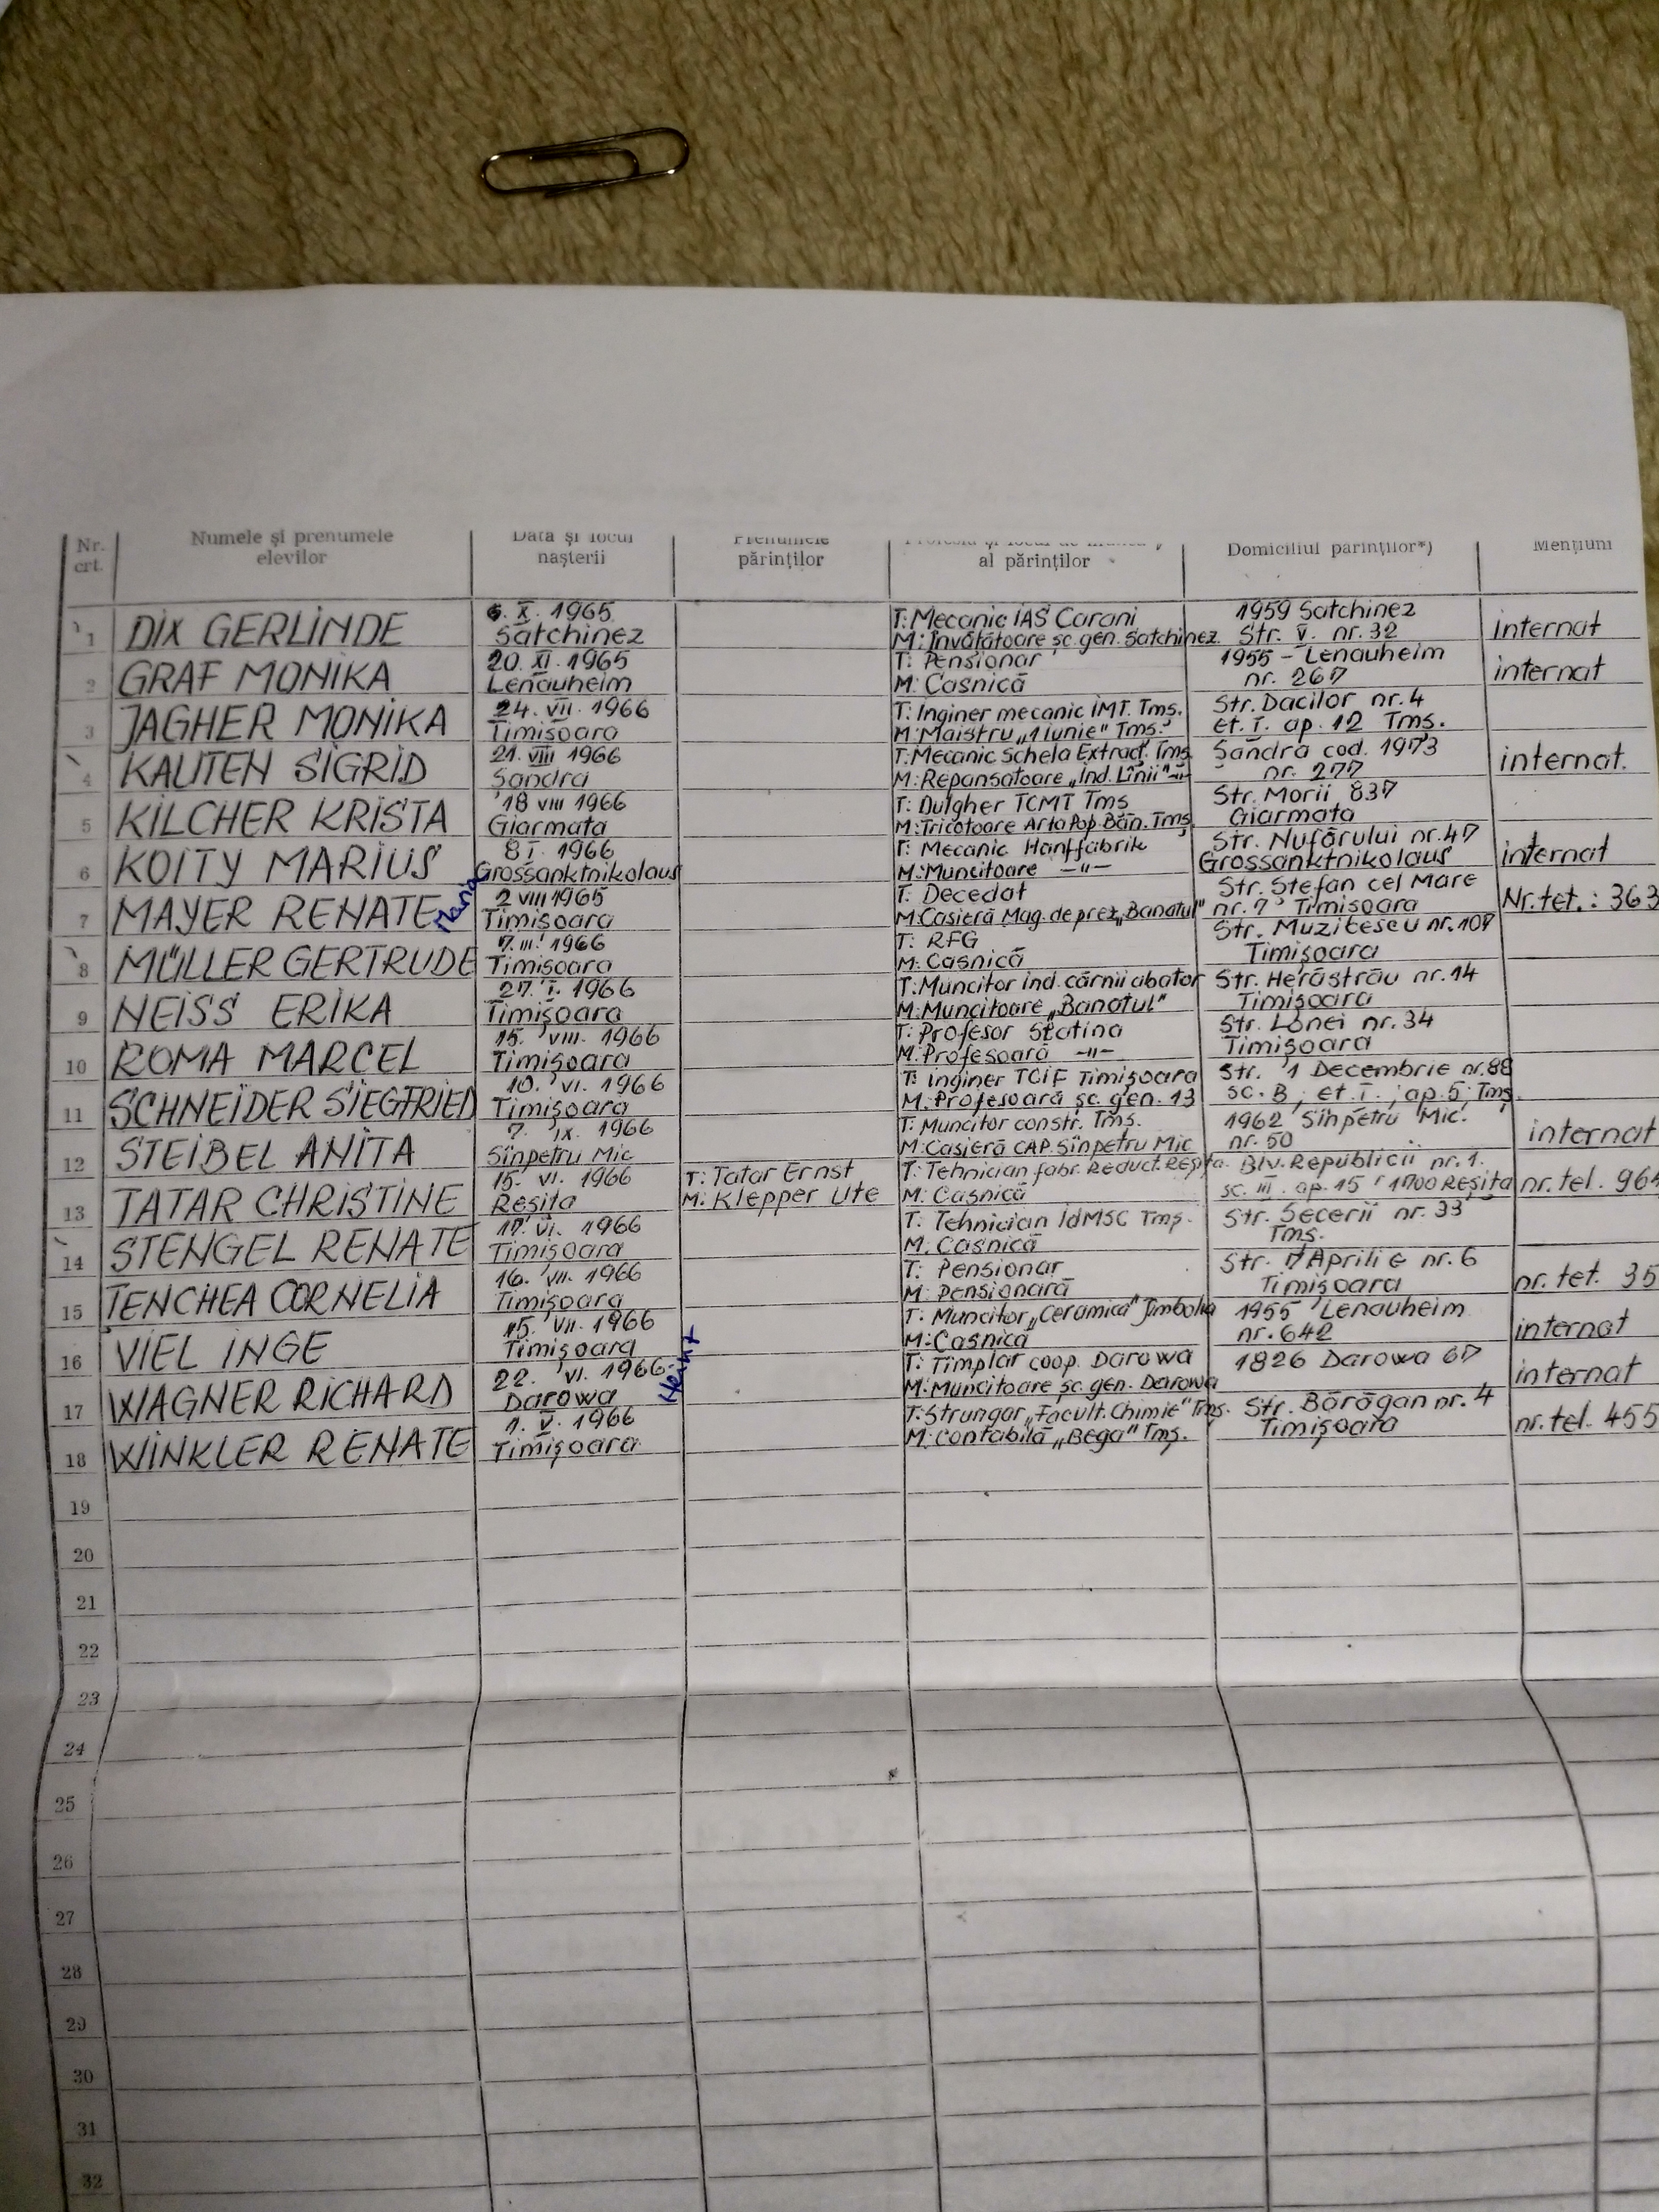 Nr. crt. Numele și prenumele elevilor Data și locul nașterii Prenumele părinților al părinților Domiciliul părinților*) Mențiuni
1 DIX GERLINDE 6. X. 1965 Satchinez T: Mecanic IAS Carani M: Învățătoare șc. gen. Satchinez 1959 Satchinez Str. V. nr. 32 internat
2 GRAF MONIKA 20. XI. 1965 Lenauheim T: Pensionar M: Casnică 1955 - Lenauheim nr. 267 internat
3 JAGHER MONIKA 24. VII. 1966 Timișoara T: Inginer mecanic IMT. Tmș. M: Maistru „1 Iunie" Tmș. Str. Dacilor nr. 4 et. I. ap. 12 Tmș.
4 KAUTEN SIGRID 21. VIII 1966 Șandra T: Mecanic Schela Extracț. Tmș M: Repansatoare „Ind. Lînii" -"- Șandra cod. 1973 nr. 277 internat.
5 KILCHER KRISTA 18 VIII 1966 Giarmata T: Dulgher TCMT Tmș M: Tricotoare Arta Pop. Băn. Tmș Str. Morii 837 Giarmata
6 KOITY MARIUS 8 I. 1966 Grossanktnikolaus T: Mecanic Hanffabrik M: Muncitoare -"- Str. Nufărului nr. 47 Grossanktnikolaus internat
7 MAYER RENATE Maria 2 VIII 1965 Timișoara T: Decedat M: Casieră Mag. de prez. „Banatul" Str. Ștefan cel Mare nr. 7 Timișoara Nr. tel. : 363
8 MÜLLER GERTRUDE 7. III. 1966 Timișoara T: RFG M: Casnică Str. Muzicescu nr. 107 Timișoara
9 NEISS ERIKA 27. I. 1966 Timișoara T: Muncitor ind. cărnii abator M: Muncitoare „Banatul" Str. Herăstrău nr. 14 Timișoara
10 ROMA MARCEL 15. VIII. 1966 Timișoara T: Profesor Slatina M: Profesoară -"- Str. Lonei nr. 34 Timișoara
11 SCHNEIDER SIEGFRIED 10. VI. 1966 Timișoara T: inginer TCIF Timișoara M: Profesoară șc. gen. 13 Str. 1 Decembrie nr. 88 sc. B; et. I. ; ap. 5; Tmș.
12 STEIBEL ANITA 7. IX. 1966 Sînpetru Mic T: Muncitor constr. Tmș. M: Casieră CAP. Sînpetru Mic 1962 Sînpetru Mic. nr. 50 internat
13 TATAR CHRISTINE 15. VI. 1966 Reșița T: Tatar Ernst M: Klepper Ute T: Tehnician fabr. Reduct. Reșița. M: Casnică Blv. Republicii nr. 1. sc. III. ap. 15 1700 Reșița nr. tel. 964
14 STENGEL RENATE 17. VI. 1966 Timișoara T: Tehnician IdMSC Tmș. M: Casnică Str. Secerii nr. 33 Tmș.
15 TENCHEA CORNELIA 16. VII. 1966 Timișoara T: Pensionar M: Pensionară Str. 7 Aprilie nr. 6 Timișoara nr. tel. 35
16 VIEL INGE 15. VII. 1966 Timișoara T: Muncitor „Ceramica" Jimbolia M: Casnică 1955 Lenauheim nr. 642 internat
17 WAGNER RICHARD 22. VI. 1966 Darowa T: Timplar coop. Darowa M: Muncitoare șc. gen. Darowa 1826 Darowa 67 internat
18 WINKLER RENATE 1. V. 1966 Timișoara T: Strungar „Facult. Chimie" Tmș. M: contabilă „Bega" Tmș. Str. Bărăgan nr. 4 Timișoara nr. tel. 455
19
20
21
22
23
24
25
26
27
28
29
30
31
32